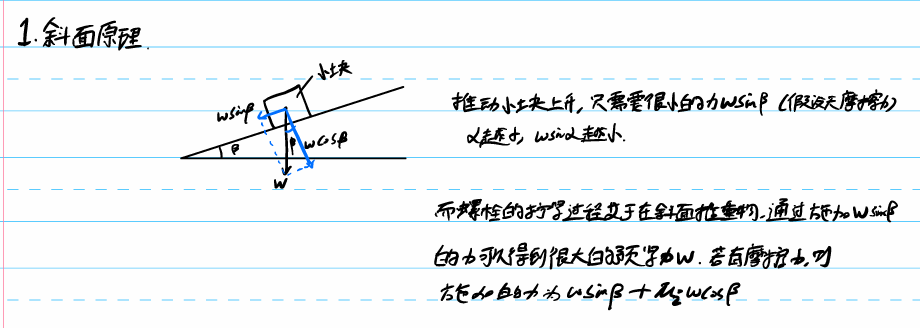 1.斜面原理.
小块
wsinβ
β
β
wcosβ
W
推动小块上升,只需要很小的力wsinβ(假设无摩擦力)
α越小,wsinα越小.
而螺栓的拧紧过程等于在斜面推重物.通过施加wsinβ
的力可以得到很大的预紧力W.若有摩擦力,则
施加的力为wsinβ+μwcosβ